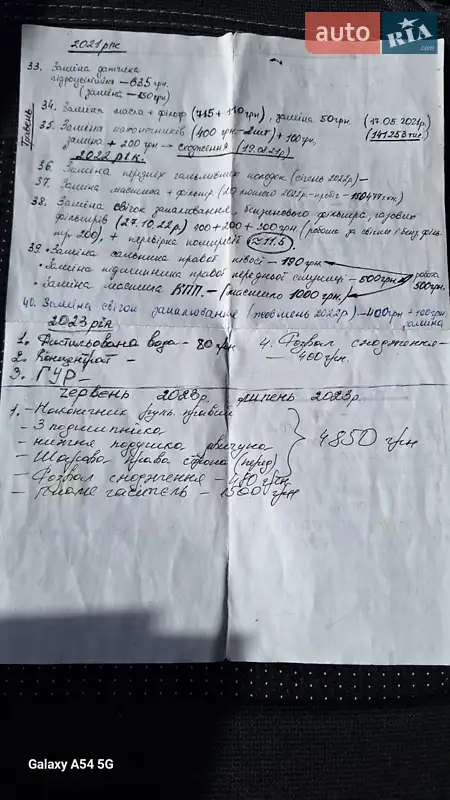 auto RIA.com
2021 рік
33. Заміна датчика
гідроусилювача – 635 грн.
(заміна – 150 грн)
Травень
34. Заміна масла + фільтр (715 + 110 грн), заміна 50 грн. (17.05.2021р.
35. Заміна наконечників (400 грн – 2шт) + 100 грн, 141253 тис)
заміна + 200 грн → сходження (19.02.21р)
2022 рік.
36. Заміна передніх гальмівних колодок (січень 2022р) –
37. Заміна масишва + фільтр (20 лютого 2022р. – пробіг – 150477 км.)
38. Заміна свічок запалювання, бензинового фільтра, газових
фільтрів (27.10.22р) 100 + 200 + 300 грн (робота за свічки і бенз. фільтр
200), + перевірка компресії (≈11.5)
39. Заміна сальника правої півосі – 190 грн
• Заміна підшипника правої передньої ступиці – 500 грн робота
• Заміна масишва КПП. – (масишво 1000 грн) 500 грн.
40. Заміна свічок запалювання (жовтень 2022р) – 400 грн + 100 грн.
заміна
2023 рік
1. Дистильована вода – 80 грн
2. Концентрат –
3. ГУР –
4. Розвал сходження –
– 400 грн.
червень 2023р, липень 2023р.
1. – Наконечник руль. правий
– 3 подшипніка
– нижня подушка двигуна
– Шарова права сторона (перед)
– Розвал сходження – 480 грн
– Пламегаситель – 1500 грн
4850 грн
Galaxy A54 5G